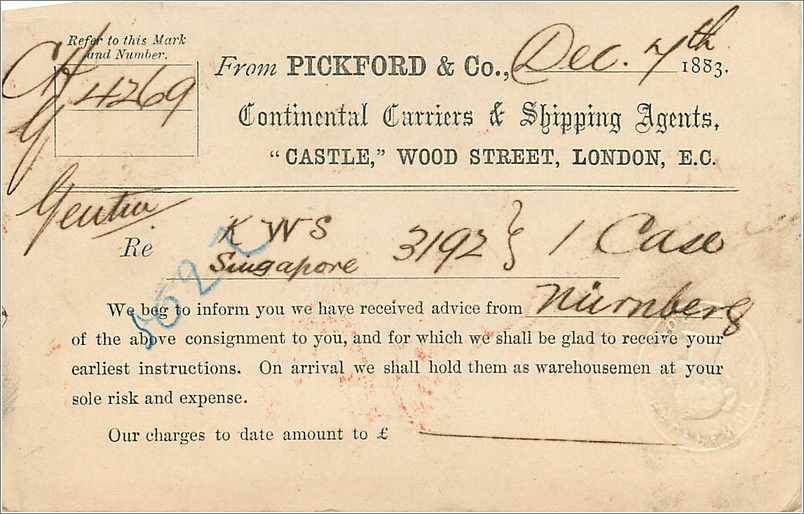 Refer to this Mark
and Number.
4269
From PICKFORD & Co., Dec. 7th 1883.
Continental Carriers & Shipping Agents,
"CASTLE," WOOD STREET, LONDON, E.C.
Re KWS
Singapore 3192 } 1 Case
We beg to inform you we have received advice from Nürnberg
of the above consignment to you, and for which we shall be glad to receive your
earliest instructions. On arrival we shall hold them as warehousemen at your
sole risk and expense.
Our charges to date amount to £